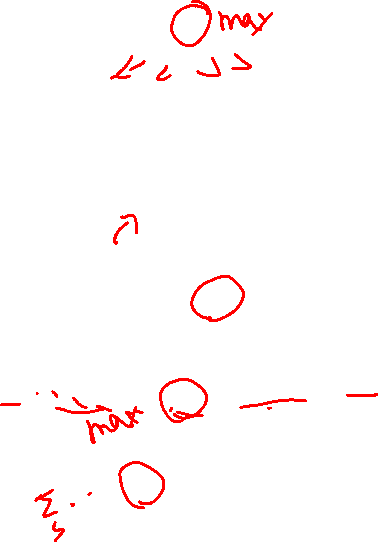 max
max